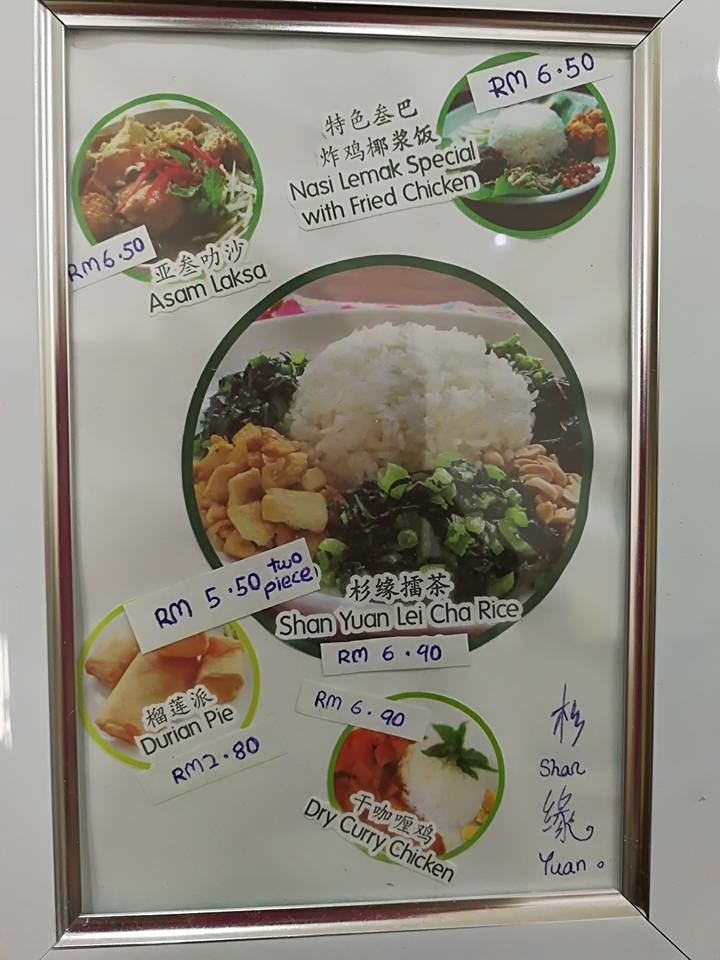 RM 6.50
特色叁巴
炸鸡椰浆饭
Nasi Lemak Special
with Fried Chicken
RM 6.50
亚叁叻沙
Asam Laksa
杉缘擂茶
Shan Yuan Lei Cha Rice
RM 6.90
RM 5.50 two piece
榴莲派
Durian Pie
RM 2.80
RM 6.90
干咖喱鸡
Dry Curry Chicken
杉
Shan
缘
Yuan